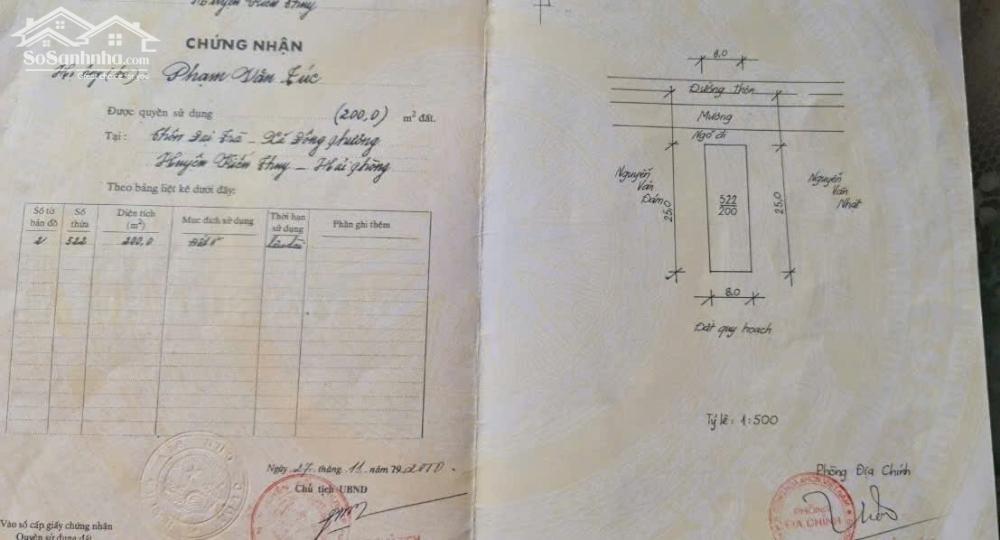 Huyện Kiến Thụy
SoSanhnha.com
Great choice for you
CHỨNG NHẬN
Phạm Văn Túc
Được quyền sử dụng (200,0) m² đất.
Tại : Thôn Đại Trà - Xã Đông Phương
Huyện Kiến Thụy - Hải Phòng
Theo bảng liệt kê dưới đây:
Số tờ bản đồ
Số thửa
Diện tích (m²)
Mục đích sử dụng
Thời hạn sử dụng
Phần ghi thêm
2 522 200,0 Đất ở Lâu dài
Ngày 27 tháng 11 năm 19 2000
Chủ tịch UBND
Vào sổ cấp giấy chứng nhận
Quyền sử dụng đất
8,0
Đường thôn
Mương
Ngõ đi
Nguyễn Văn Đám
25,0
522
200
25,0
Nguyễn Văn Nhật
8,0
Đất quy hoạch
Tỷ lệ : 1:500
Phòng Địa Chính
PHÒNG
ĐỊA CHÍNH